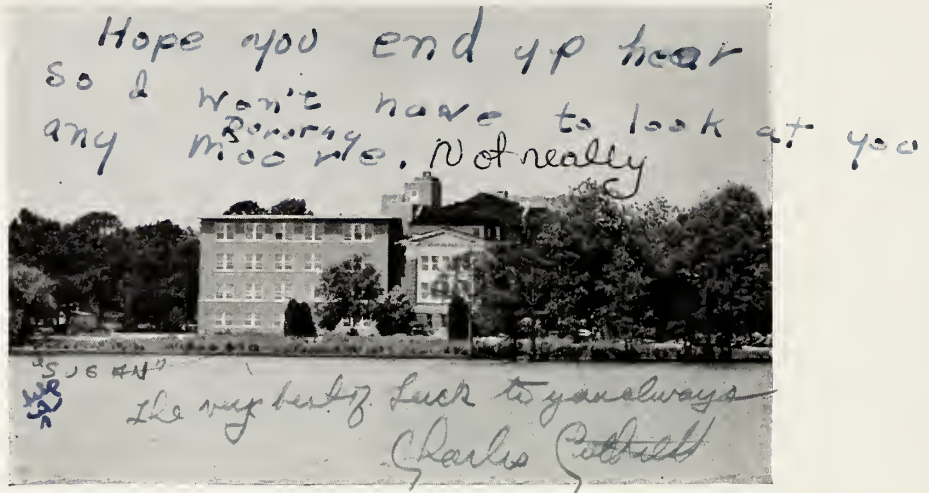 Hope you end up hear
so I won't have to look at you
any moore. Not really
"SUSAN"
The very best of Luck to you always
Charles